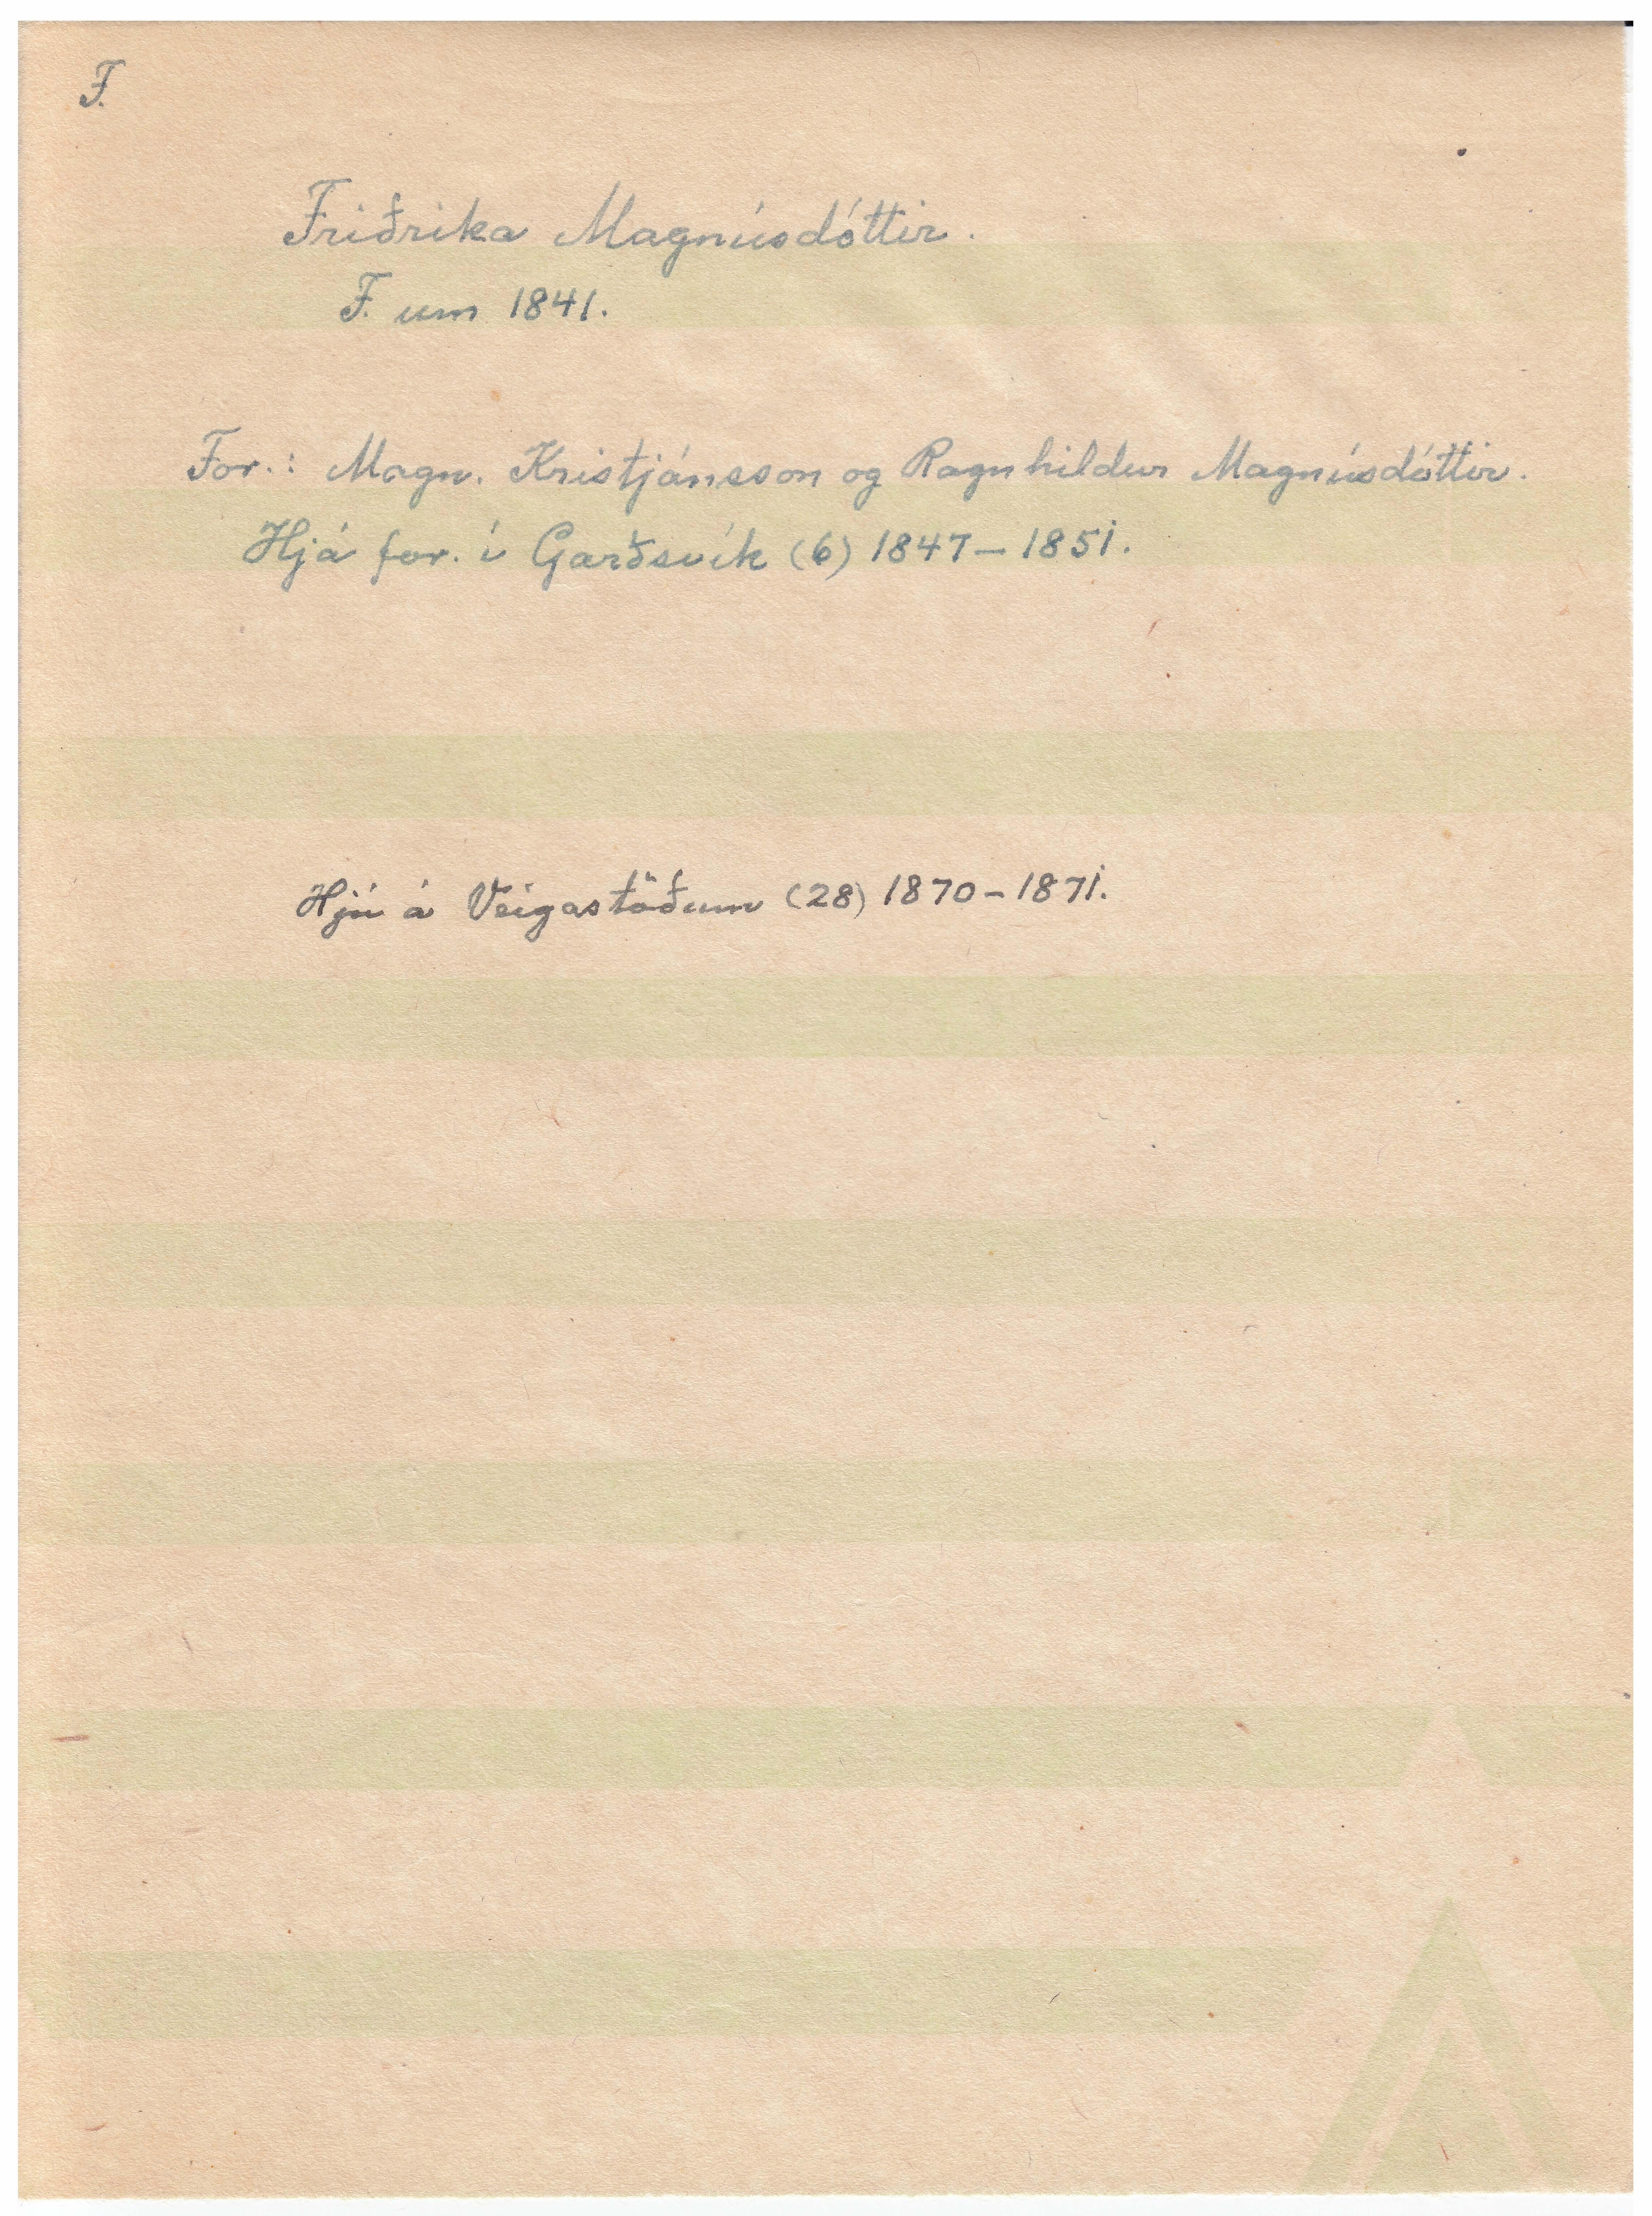 F.
Friðrika Magnúsdóttir.
F. um 1841.
For.: Magn. Kristjánsson og Ragnhildur Magnúsdóttir.
Hjá for. í Garðsvík (6) 1847-1851.
Hjú á Veigastöðum (28) 1870-1871.